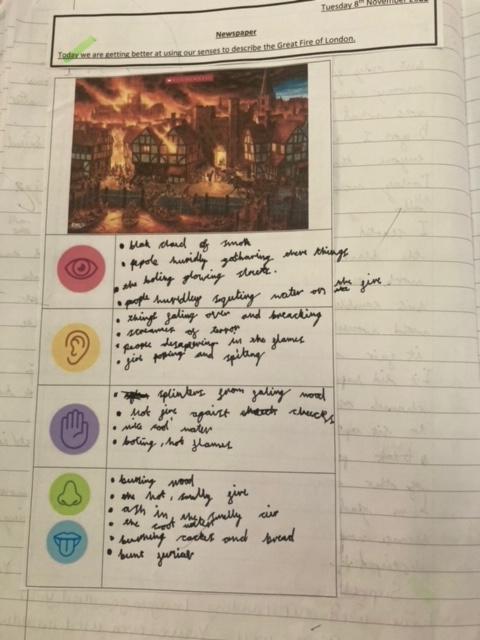 Tuesday 8th November
Newspaper
Today we are getting better at using our senses to describe the Great Fire of London.
• blak cloud of smok
• pepole huridly gatharing there things
• the boling glowing street.
• pople huridley squting water on the fire
• things faling over and breacking
• screames of terror
• people desapering in the flames
• fire poping and spiting
• splinters from faling wood
• hot fire against cheecks
• nice cool water
• boling, hot flames
• burning wood
• the hot, smelly fire
• ash in the smelly air
• the cool water
• burning cackes and bread
• burnt